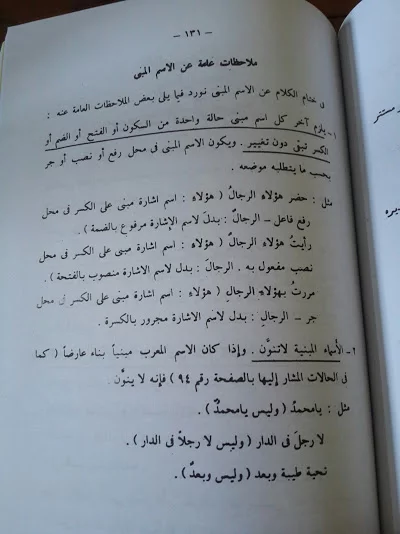 — ١٣١ —
ملاحظات عامة عن الاسم المبنى
فى ختام الكلام عن الاسم المبنى نورد فيما يلى بعض الملاحظات العامة عنه :
١ – يلزم آخر كل اسم مبنى حالة واحدة من السكون أو الفتح أو الضم أو
الكسر تبقى دون تغيير . ويكون الاسم المبنى فى محل رفع أو نصب أو جر
بحسب ما يتطلبه موضعه .
مثل : حضر هؤلاء الرجالُ ( هؤلاءِ : اسم اشارة مبنى على الكسر فى محل
رفع فاعل – الرجالُ : بدل من اسم الإشارة مرفوع بالضمة ) .
رأيتُ هؤلاء الرجالَ ( هؤلاءِ : اسم اشارة مبنى على الكسر فى محل
نصب مفعول به . الرجالَ : بدل لاسم الاشارة منصوب بالفتحة ) .
مررتُ بهؤلاءِ الرجالِ ( هؤلاءِ : اسم اشارة مبنى على الكسر فى محل
جر – الرجالِ : بدل لاسم الاشارة مجرور بالكسرة .
٢ – الأسماء المبنية لاتنوَّن . وإذا كان الاسم المعرب مبنياً بناء عارضاً ( كما
فى الحالات المشار إليها بالصفحة رقم ٩٤ ) فإنه لا ينوَّن .
مثل : يامحمدُ ( وليس يامحمدٌ ) .
لا رجلَ فى الدار ( وليس لا رجلاً فى الدار ) .
تحية طيبة وبعد ( وليس وبعدٌ ) .